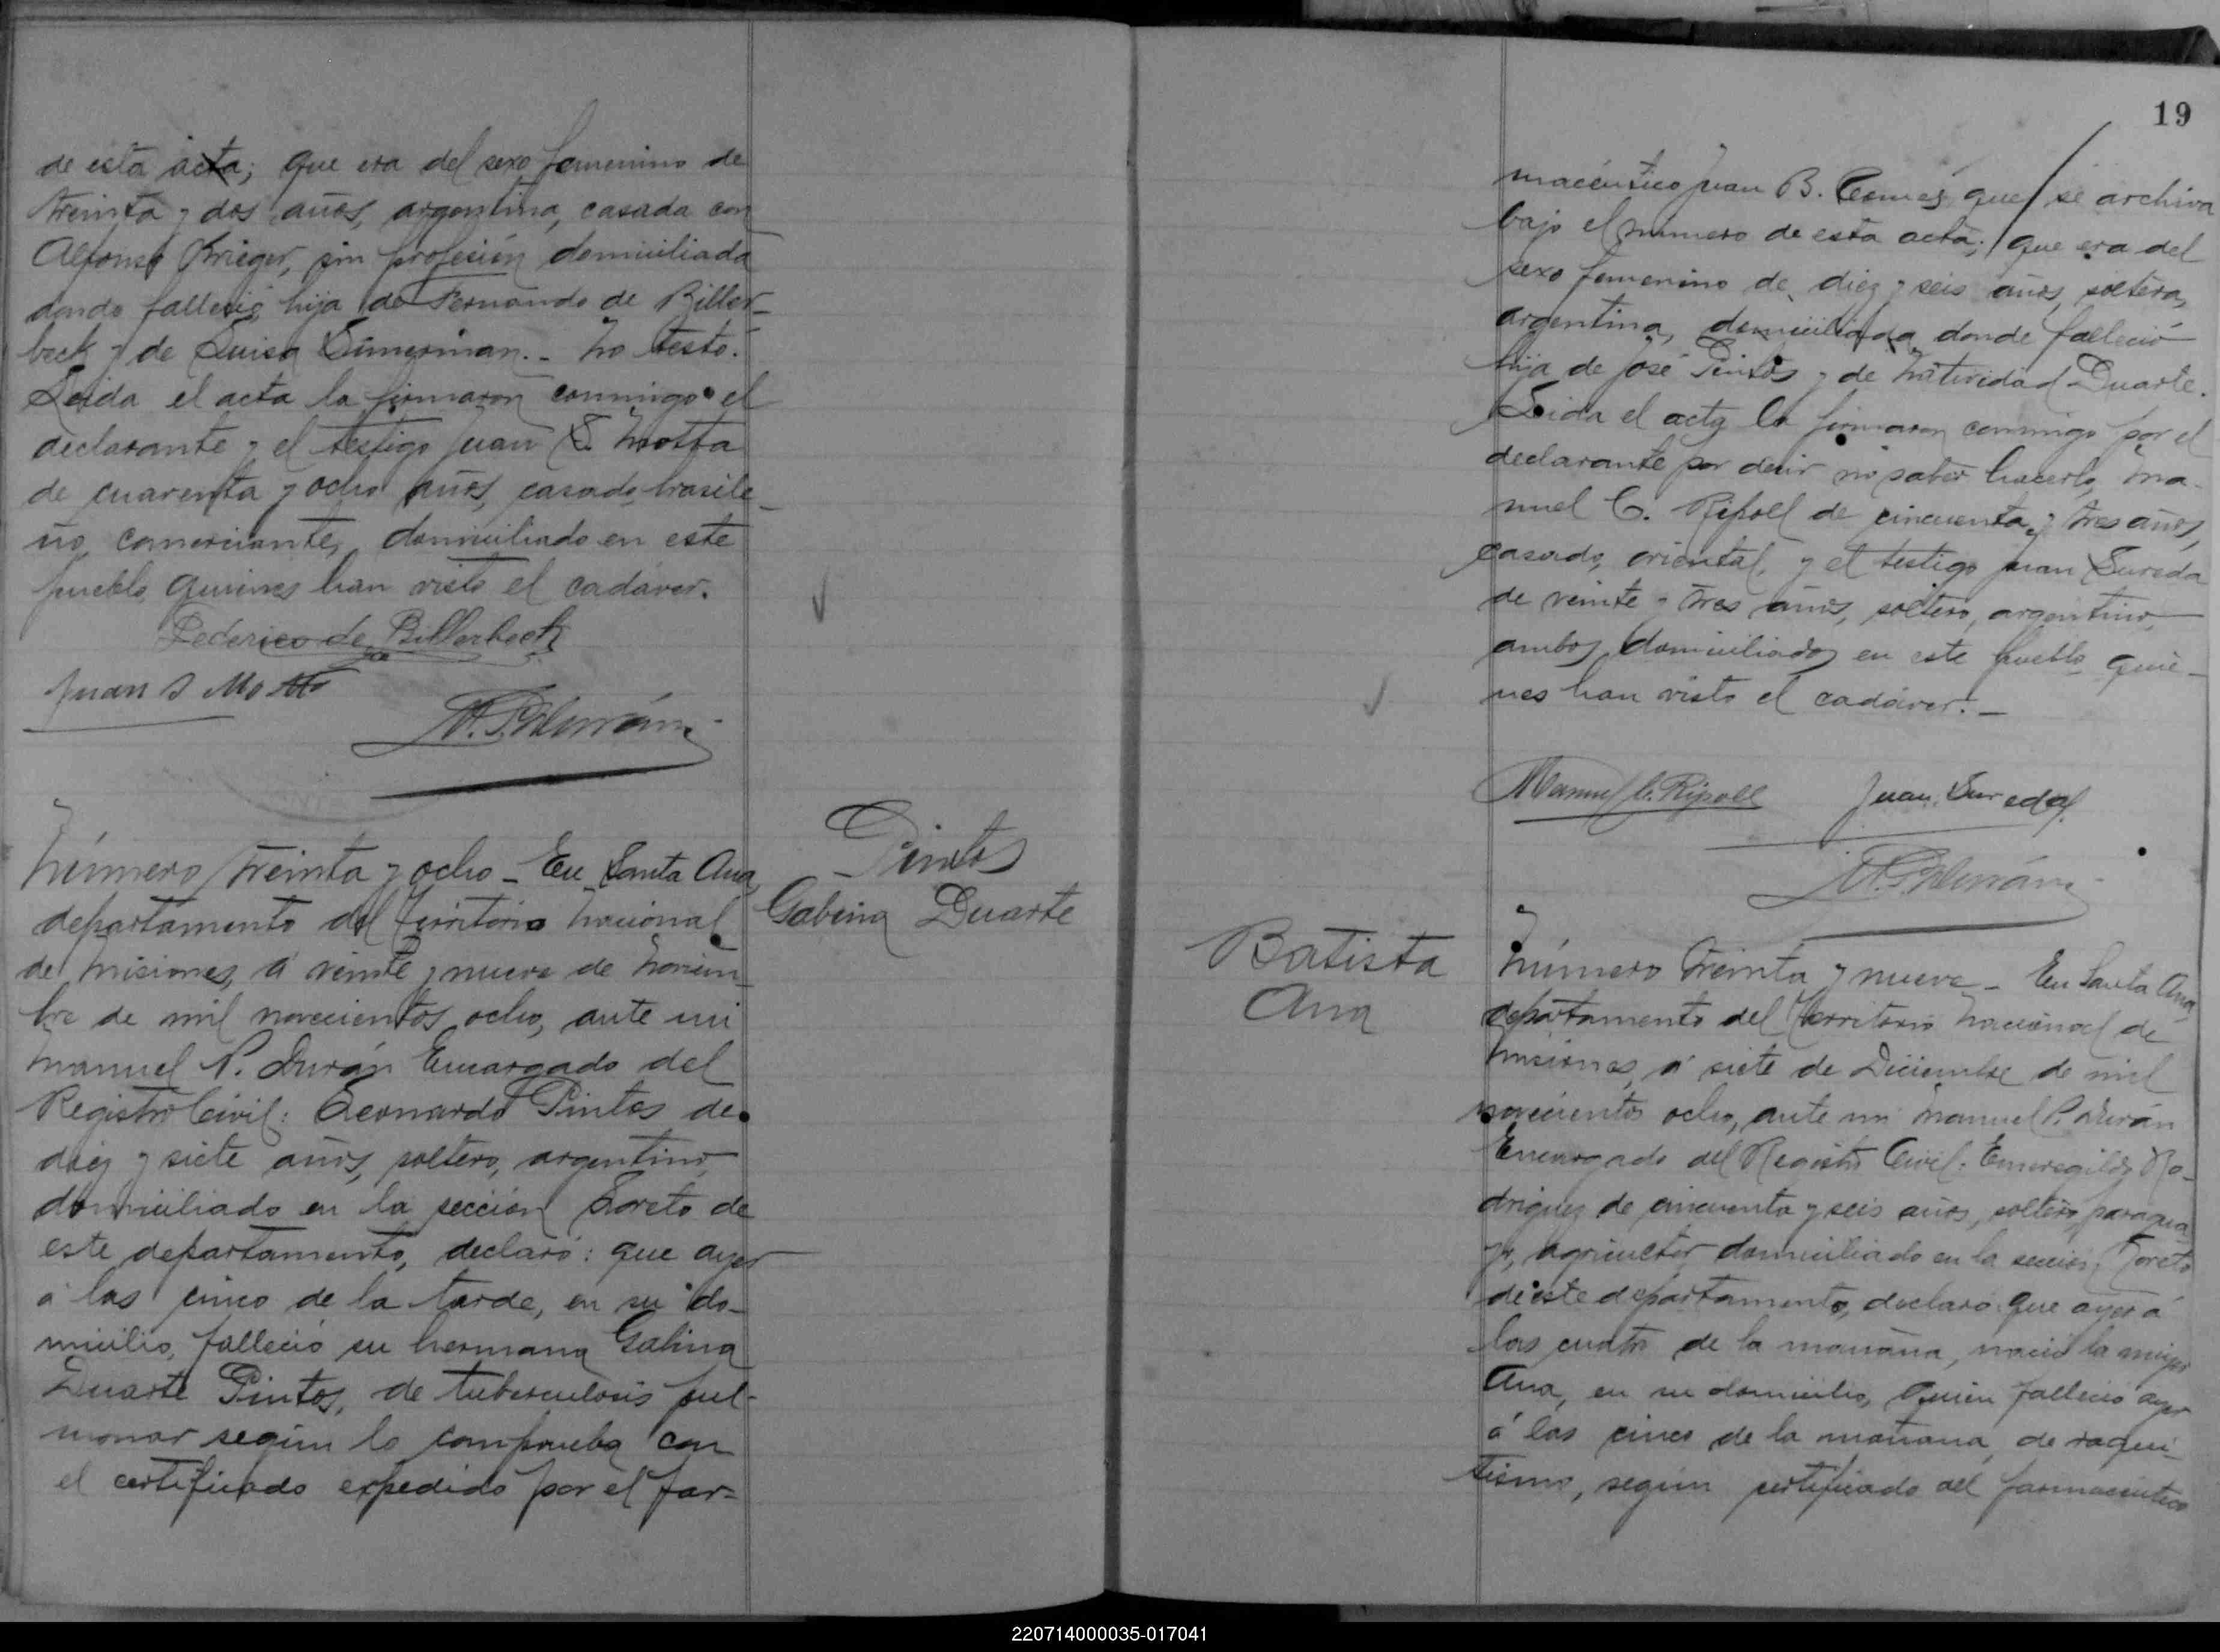 de esta acta; que era del sexo femenino de
treinta y dos años, argentina, casada con
Alfonso Krieger, sin profesión domiciliada
donde falleció, hija de Fernando de Biller-
beck y de Luisa Simerman. - No testó.
Leida el acta la firmaron conmigo el
declarante y el testigo Juan S. Motta
de cuarenta y ocho años, casado, brasile-
ño, comerciante, domiciliado en este
pueblo, quienes han visto el cadáver.
Federico de Billerbeck
Juan S Motta
M. P. Durán
Número treinta y ocho - En Santa Ana,
departamento del Territorio Nacional
de Misiones, á veinte y nueve de Noviem-
bre de mil novecientos ocho, ante mi
Manuel P. Durán Encargado del
Registro Civil: Leonardo Pintos de
diez y siete años, soltero, argentino,
domiciliado en la sección Loreto de
este departamento, declaró: que ayer
á las cinco de la tarde, en su do-
micilio, falleció su hermana Gabina
Duarte Pintos, de tuberculosis pul-
monar según lo comprueba con
el certificado expedido por el far-
Pintos
Gabina Duarte
19
macéutico Juan B. Comes, que se archiva
bajo el número de esta acta; que era del
sexo femenino de diez y seis años, soltera,
argentina, domiciliada donde falleció
hija de José Pintos y de Natividad Duarte.
Leida el acta la firmaron conmigo por el
declarante por decir no saber hacerlo, Ma-
nuel C. Ripoll de cincuenta y tres años,
casado, oriental, y el testigo Juan Sureda
de veinte y tres años, soltero, argentino,
ambos domiciliados en este pueblo, quie-
nes han visto el cadáver. -
Manuel C. Ripoll
Juan Sureda
M. P. Durán
Batista
Ana
Número treinta y nueve - En Santa Ana
departamento del Territorio Nacional de
Misiones, á siete de Diciembre de mil
novecientos ocho, ante mi Manuel P. Durán
Encargado del Registro Civil: Emeregildo Ro-
driguez de cincuenta y seis años, soltero, paragua
yo, agricultor domiciliado en la sección Loreto
de este departamento, declaró: que ayer á
las cuatro de la mañana, nació la mujer
Ana, en su domicilio, quien falleció ayer
á las cinco de la mañana, de raqui-
tismo, según certificado del farmacéutico
220714000035-017041